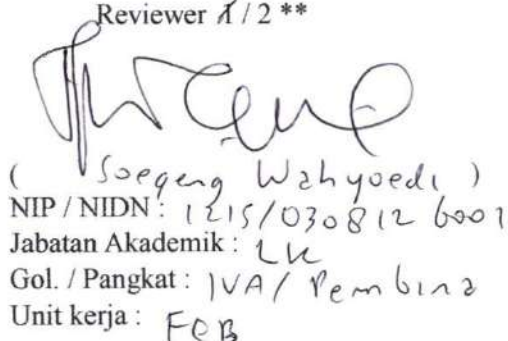 Reviewer 1 / 2 **
( Soegeng Wahyoedi )
NIP / NIDN : 1215/0308126001
Jabatan Akademik : LK
Gol. / Pangkat : IVA / Pembina
Unit kerja : FEB